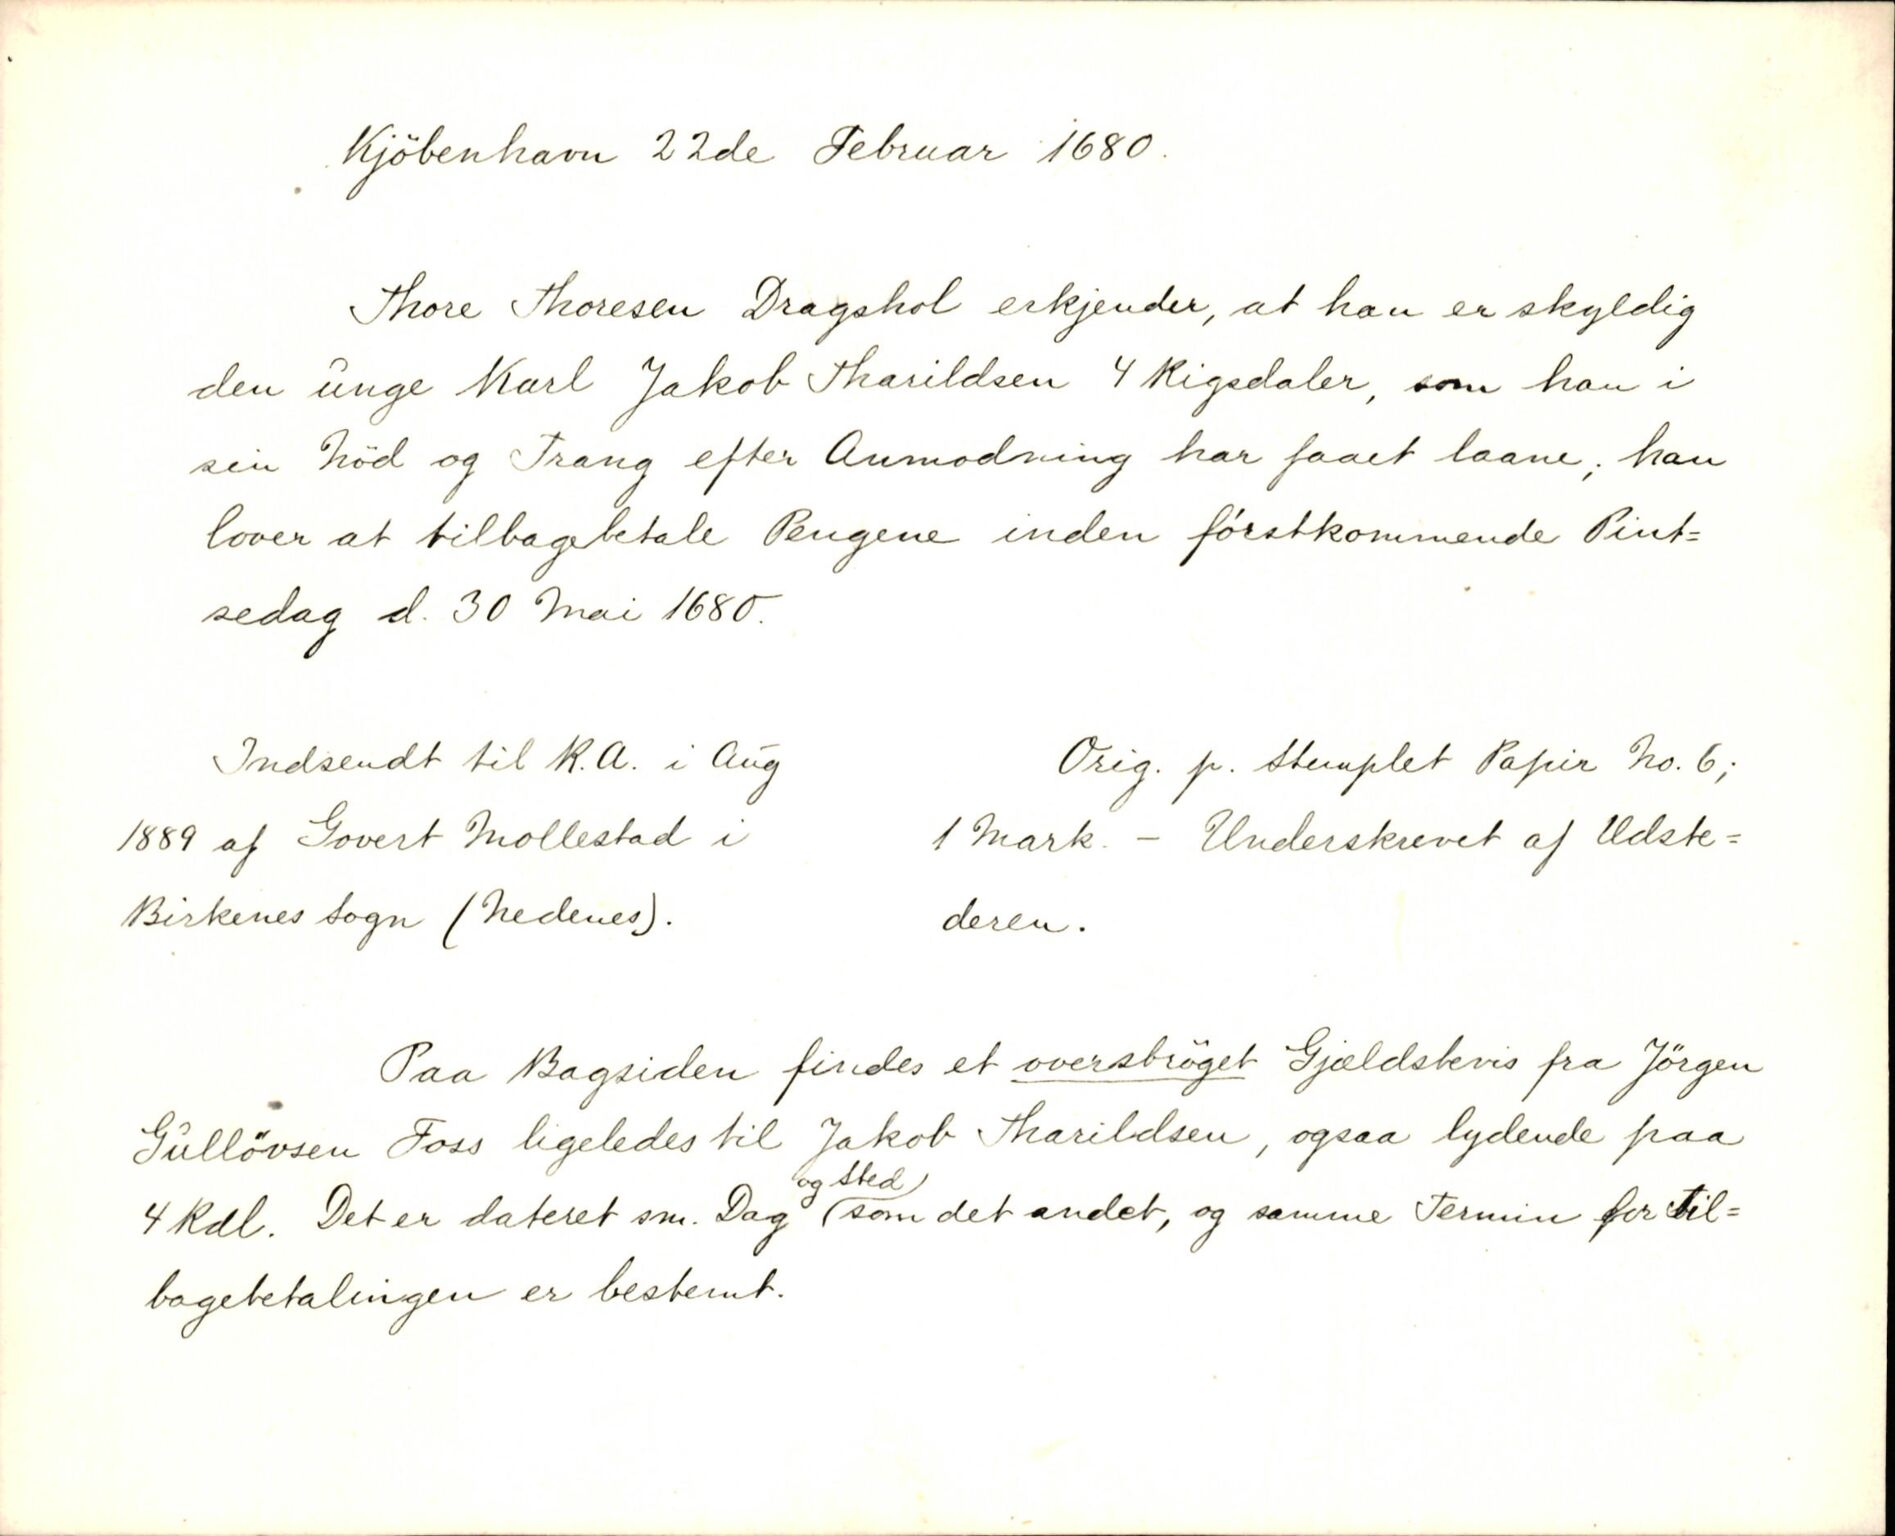 Kjöbenhavn 22de Februar 1680.
Thore Thoresen Dragshol erkjender, at han er skyldig
den unge Karl Jakob Tharildsen 4 Rigsdaler, som han i
sin Nöd og Trang efter Anmodning har faaet laane; han
lover at tilbagebetale Pengene inden förstkommende Pint=
sedag d. 30 Mai 1680.
Indsendt til R.A. i Aug
1889 af Govert Mollestad i
Birkenes Sogn (Nedenes).
Orig. p. Stemplet Papir No. 6;
1 Mark. - Underskrevet af Udste=
deren.
Paa Bagsiden findes et overströget Gjældsbevis fra Jörgen
Gullövsen Foss ligeledes til Jakob Tharildsen, ogsaa lydende paa
4 Rdl. Det er dateret sm. Dag og Sted som det andet, og samme Termin for Til=
bagebetalingen er bestemt.